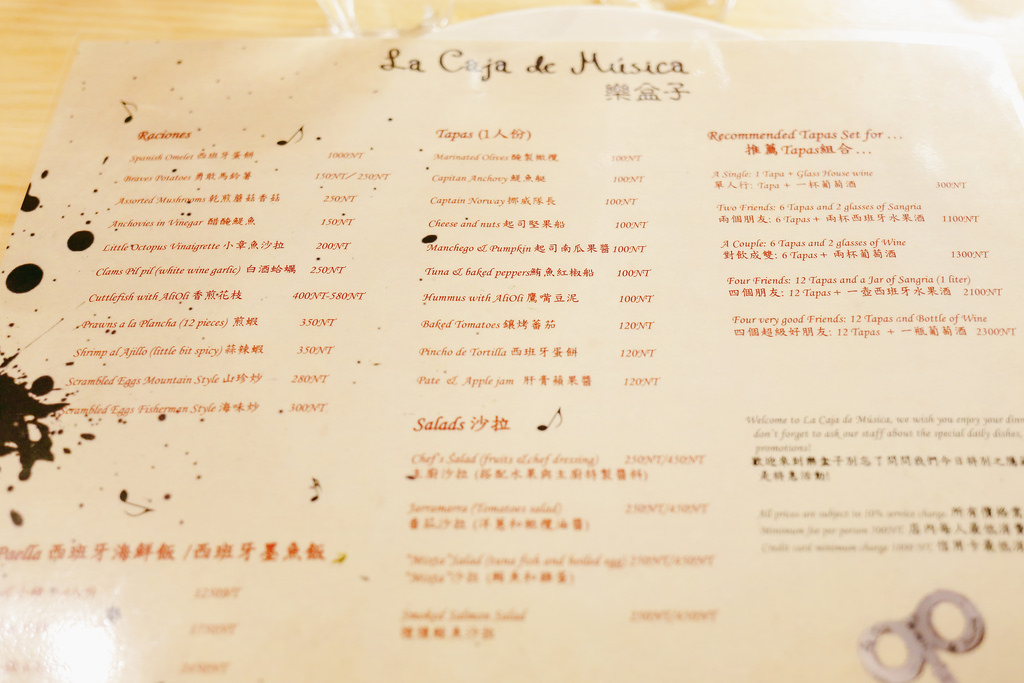 La Caja de Música
樂盒子
Raciones
Spanish Omelet 西班牙蛋餅 1000NT
Braves Potatoes 勇敢馬鈴薯 150NT/ 250NT
Assorted Mushrooms 乾煎蘑菇香菇 250NT
Anchovies in Vinegar 醋醃鯷魚 150NT
Little Octopus Vinaigrette 小章魚沙拉 200NT
Clams Pil pil (white wine garlic) 白酒蛤蠣 250NT
Cuttlefish with AliOli 香煎花枝 400NT-580NT
Prawns a la Plancha (12 pieces) 煎蝦 350NT
Shrimp al Ajillo (little bit spicy) 蒜辣蝦 350NT
Scrambled Eggs Mountain Style 山珍炒 280NT
Scrambled Eggs Fisherman Style 海味炒 300NT
Paella 西班牙海鮮飯 /西班牙墨魚飯
1250NT
1750NT
Tapas (1人份)
Marinated Olives 醃製橄欖 100NT
Capitan Anchovy 鯷魚艇 100NT
Captain Norway 挪威隊長 100NT
Cheese and nuts 起司堅果船 100NT
Manchego & Pumpkin 起司南瓜果醬 100NT
Tuna & baked peppers 鮪魚紅椒船 100NT
Hummus with AliOli 鷹嘴豆泥 100NT
Baked Tomatoes 鑲烤蕃茄 120NT
Pincho de Tortilla 西班牙蛋餅 120NT
Pate & Apple jam 肝膏蘋果醬 120NT
Salads 沙拉
Chef's Salad (fruits & chef dressing) 250NT/450NT
主廚沙拉 (搭配水果與主廚特製醬料)
(Tomatoes salad) 250NT/450NT
番茄沙拉 (洋蔥和橄欖油醬)
Salad (tuna fish and boiled egg) 250NT/450NT
沙拉 (鮪魚和雞蛋)
Smoked Salmon Salad 250NT/450NT
煙燻鮭魚沙拉
Recommended Tapas Set for ...
推薦Tapas組合 ...
A Single: 1 Tapa + Glass House wine
單人行: Tapa + 一杯葡萄酒 300NT
Two Friends: 6 Tapas and 2 glasses of Sangria
兩個朋友: 6 Tapas + 兩杯西班牙水果酒 1100NT
A Couple: 6 Tapas and 2 glasses of Wine
對飲成雙: 6 Tapas + 兩杯葡萄酒 1300NT
Four Friends: 12 Tapas and a Jar of Sangria (1 liter)
四個朋友: 12 Tapas + 一壺西班牙水果酒 2100NT
Four very good Friends: 12 Tapas and Bottle of Wine
四個超級好朋友: 12 Tapas + 一瓶葡萄酒 2300NT
Welcome to La Caja de Música, we wish you enjoy your
don't forget to ask our staff about the special daily dishes,
promotions!
歡迎來到樂盒子別忘了問問我們今日特別之
是特惠活動!
All prices are subject to 10% service charge. 所有價格
Minimum fee per person 300NT. 店內每人最低消費
Credit card minimum charge 1000NT. 信用卡最低消